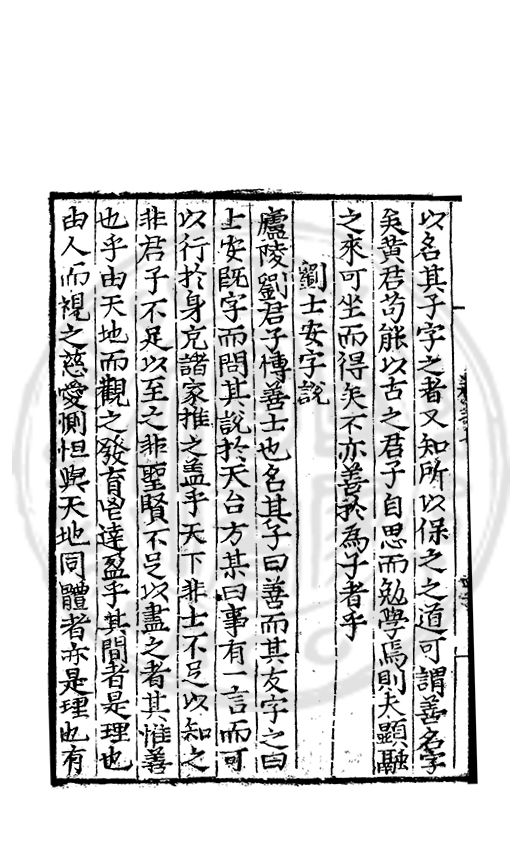 以名其子字之者又知所以保之之道可謂善名字
矣黄君苟能以古之君子自思而勉學焉則夫顯融
之來可坐而得矣不亦善於為子者乎
劉士安字說
廬陵劉君子博善士也名其子曰善而其友字之曰
士安既字而問其說於天台方某曰事有一言而可
以行於身克諸家推之盖乎天下非士不足以知之
非君子不足以至之非聖賢不足以盡之者其惟善
也乎由天地而觀之發育鬯達盈乎其間者是理也
由人而視之慈愛惻怛與天地同體者亦是理也有